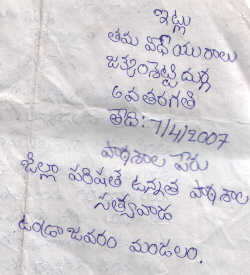 ఇట్లు
తమ విధేయురాలు
జక్కంశెట్టి దుర్గ
6వ తరగతి
తేది: 7/4/2007
పాఠశాల పేరు
జిల్లా పరిషత్ ఉన్నత పాఠశాల
సత్యవాడ
ఉండ్రాజవరం మండలం.